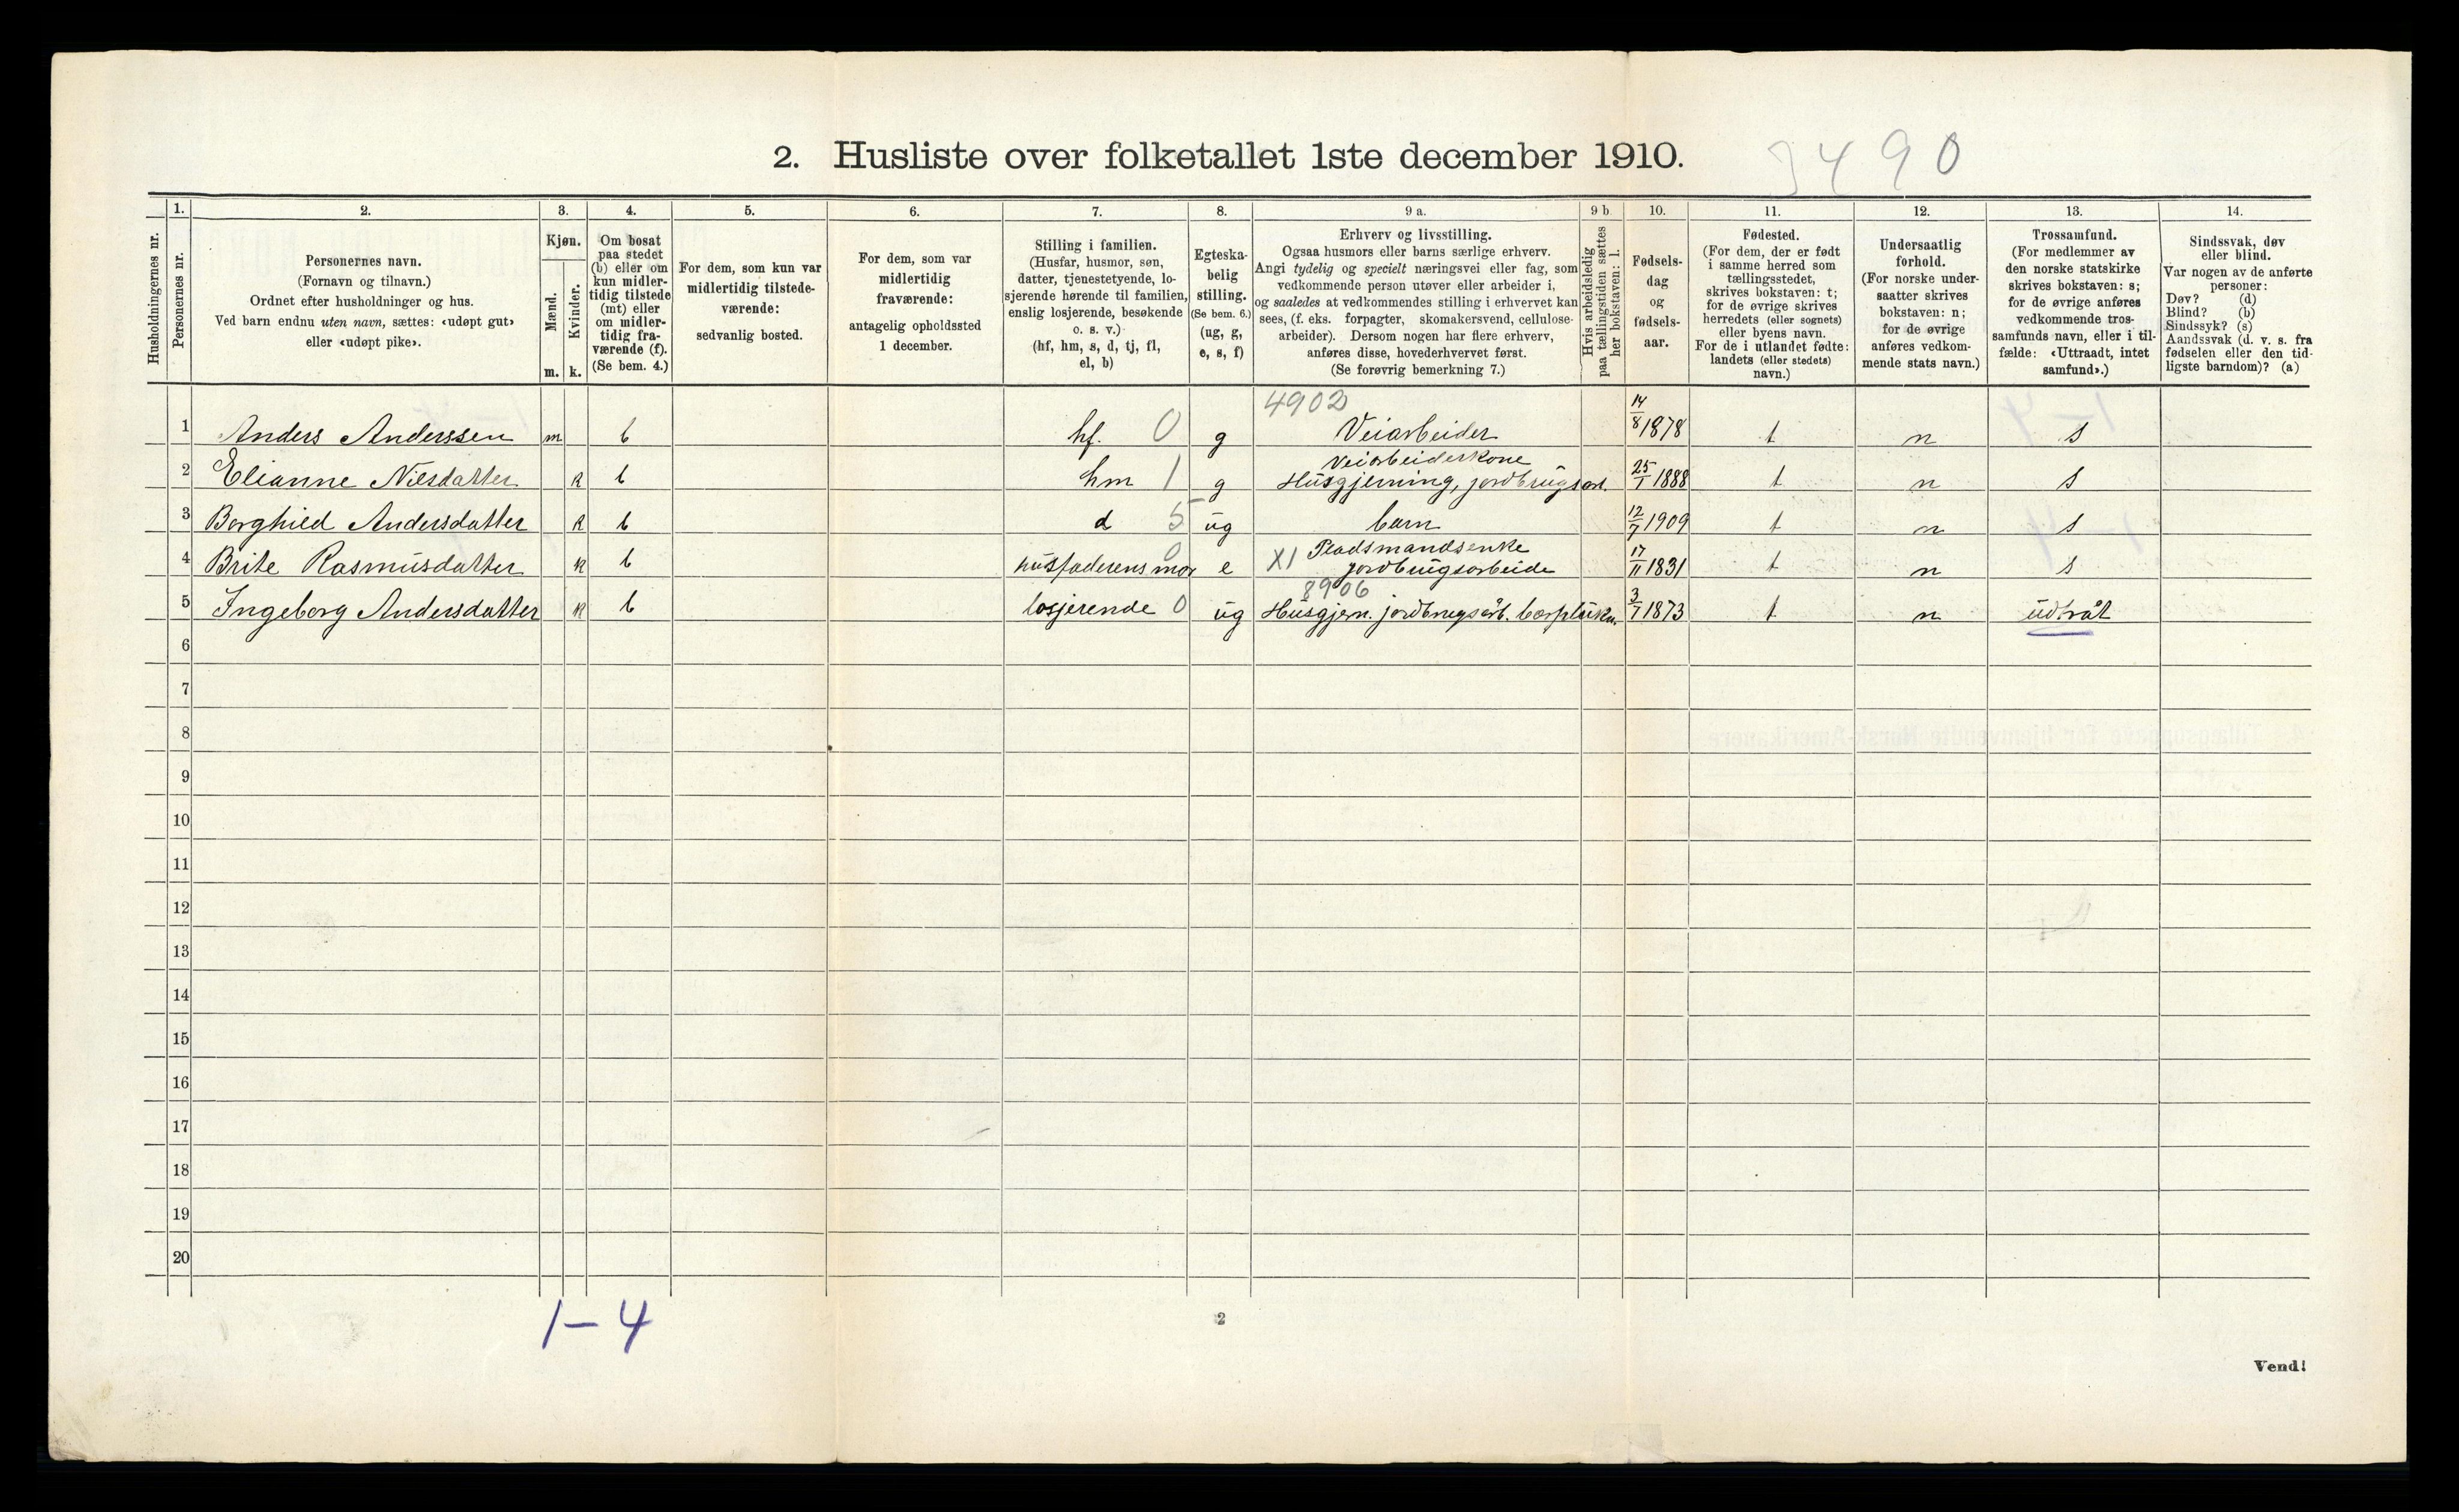 2. Husliste over folketallet 1ste december 1910. 3490
1. 2. 3. 4. 5. 6. 7. 8. 9 a. 9 b. 10. 11. 12. 13. 14.
Husholdningernes nr.
Personernes nr.
Personernes navn.
(Fornavn og tilnavn.)
Ordnet efter husholdninger og hus.
Ved barn endnu uten navn, sættes: «udøpt gut»
eller «udøpt pike».
Kjøn.
Mænd.
Kvinder.
m. k.
Om bosat
paa stedet
(b) eller om
kun midler-
tidig tilstede
(mt) eller
om midler-
tidig fra-
værende (f).
(Se bem. 4.)
For dem, som kun var
midlertidig tilstede-
værende:
sedvanlig bosted.
For dem, som var
midlertidig
fraværende:
antagelig opholdssted
1 december.
Stilling i familien.
(Husfar, husmor, søn,
datter, tjenestetyende, lo-
sjerende hørende til familien,
enslig losjerende, besøkende
o. s. v.)
(hf, hm, s, d, tj, fl,
el, b)
Egteska-
belig
stilling.
(Se bem. 6.)
(ug, g,
e, s, f)
Erhverv og livsstilling.
Ogsaa husmors eller barns særlige erhverv.
Angi tydelig og specielt næringsvei eller fag, som
vedkommende person utøver eller arbeider i,
og saaledes at vedkommendes stilling i erhvervet kan
sees, (f. eks. forpagter, skomakersvend, cellulose-
arbeider). Dersom nogen har flere erhverv,
anføres disse, hovederhvervet først.
(Se forøvrig bemerkning 7.)
Hvis arbeidsledig
paa tællingstiden sættes
her bokstaven: l.
Fødsels-
dag
og
fødsels-
aar.
Fødested.
(For dem, der er født
i samme herred som
tællingsstedet,
skrives bokstaven: t;
for de øvrige skrives
herredets (eller sognets)
eller byens navn.
For de i utlandet fødte:
landets (eller stedets)
navn.)
Undersaatlig
forhold.
(For norske under-
saatter skrives
bokstaven: n;
for de øvrige
anføres vedkom-
mende stats navn.)
Trossamfund.
(For medlemmer av
den norske statskirke
skrives bokstaven: s;
for de øvrige anføres
vedkommende tros-
samfunds navn, eller i til-
fælde: «Uttraadt, intet
samfund».)
Sindssvak, døv
eller blind.
Var nogen av de anførte
personer:
Døv? (d)
Blind? (b)
Sindssyk? (s)
Aandssvak (d. v. s. fra
fødselen eller den tid-
ligste barndom)? (a)
4902
1 Anders Anderssen m b hf. 0 g Veiarbeider 14/8 1878 t n s
Veiarbeiderskone
2 Elianne Nilsdatter k b hm 1 g Husgjerning, jordbrugsarb. 25/1 1888 t n s
3 Borghild Andersdatter k b d 5 ug barn 12/7 1909 t n s
Pladsmandsenke
4 Brite Rasmusdatter k b husfaderens mor 0 e XI jordbrugsarbeide 17/11 1831 t n s
8906
5 Ingeborg Andersdatter k b losjerende 0 ug Husgjern. jordbrugsarb. bærplukn. 3/7 1873 t n udtråt
6
7
8
9
10
11
12
13
14
15
16
17
18
19
20
1-4
2
Vend!